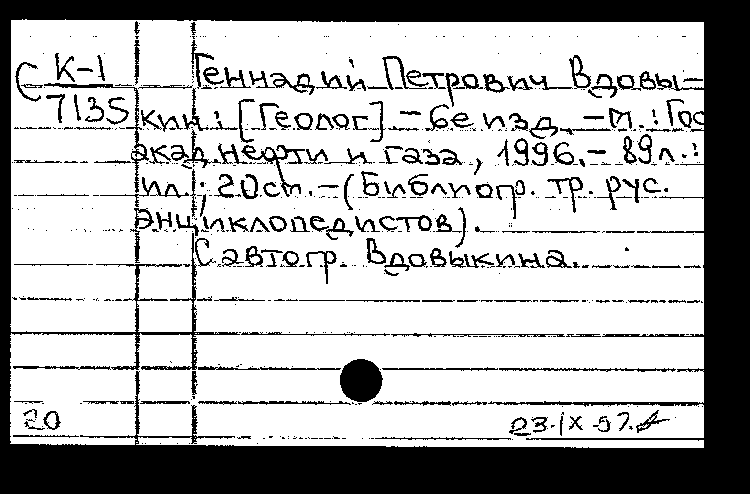 С К-1 Геннадий Петрович Вдовы-
7135 кин : [Геолог]. – 6е изд. – М. : Гос
акад. нефти и газа, 1996. – 89 л. :
ил.; 20 см. – (Библиогр. тр. рус.
энциклопедистов).
С автогр. Вдовыкина.
20 23.IX.97.